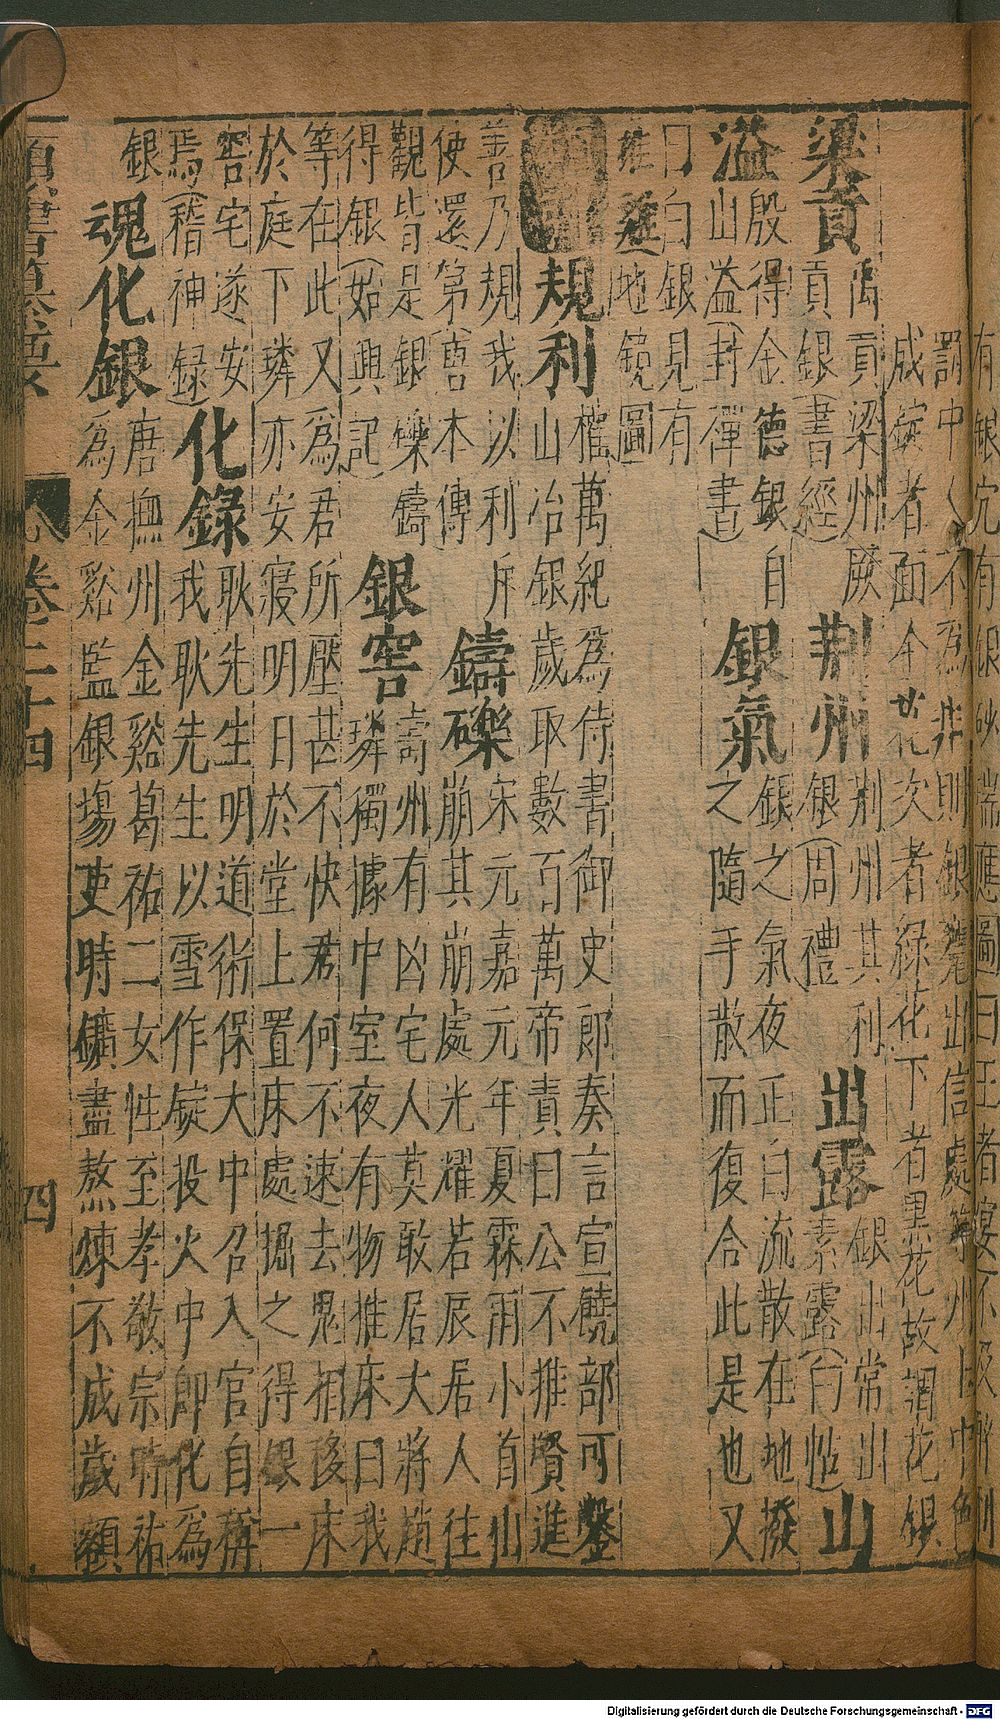 成錠者面全花次者綠花下者黑花故謂花銀
梁貢禹貢梁州厥貢銀(書經)荆州荆州其利銀(周禮)出露銀出常山素露
山溢山溢(封禪書)殷得金德銀自
銀氣銀之氣夜正白流散在地撥之隨手散而復合此是也又
曰白銀見有
地鏡圖
規利權萬紀為侍書御史郎奏言宣饒部可鑿
山冶銀歲取數百萬帝責曰公不推賢進
善乃規我以利斥使還第(唐本傳)
鑄礫宋元嘉元年夏霖雨小首山崩其崩處光耀若辰居人往
觀皆是銀礫鑄得銀(始興記)
銀窖壽州有凶宅人莫敢居大將趙璘獨據中室夜有物推床曰我
等在此又為君所壓甚不快君何不速去鬼相移床
於庭下璘亦安寢明日於堂上置床處掘之得銀一
窖宅遂安焉(稽神録)
化錄耿先生明道術保大中召入官自稱
我耿先生以雪作錠投火中即化為
銀
魂化銀唐撫州金谿葛祐二女性至孝敬宗時祐
為金谿監銀場吏時鑛盡熬煉不成歲額
卷二十四
四
Digitalisierung gefördert durch die Deutsche Forschungsgemeinschaft - DFG